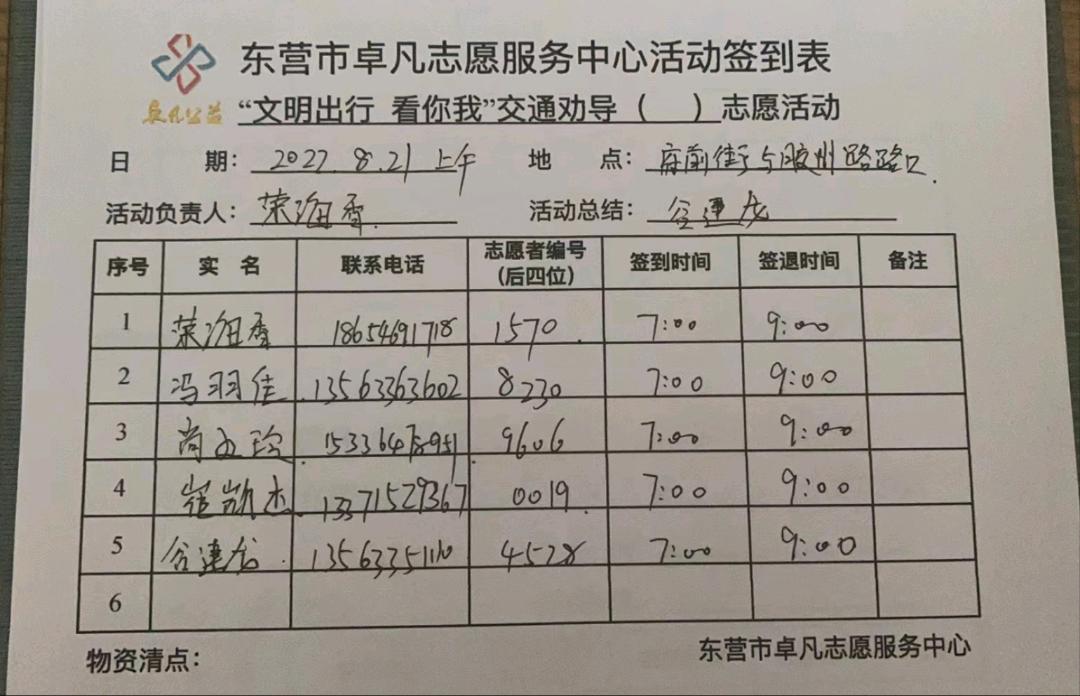 东营市卓凡志愿服务中心活动签到表
卓凡公益
“文明出行 看你我”交通劝导（ ）志愿活动
日 期：2022.8.21上午 地 点：府前街与胶州路路口.
活动负责人：荣海香 活动总结：谷建龙
序号 实 名 联系电话 志愿者编号（后四位） 签到时间 签退时间 备注
1 荣海香 18654691718 1570 7:00 9:00
2 冯羽佳 13563363602 8230 7:00 9:00
3 尚 玲 9606 7:00 9:00
4 崔凯杰 13371529367 0019 7:00 9:00
5 谷建龙 13563351110 4528 7:00 9:00
6
物资清点：
东营市卓凡志愿服务中心